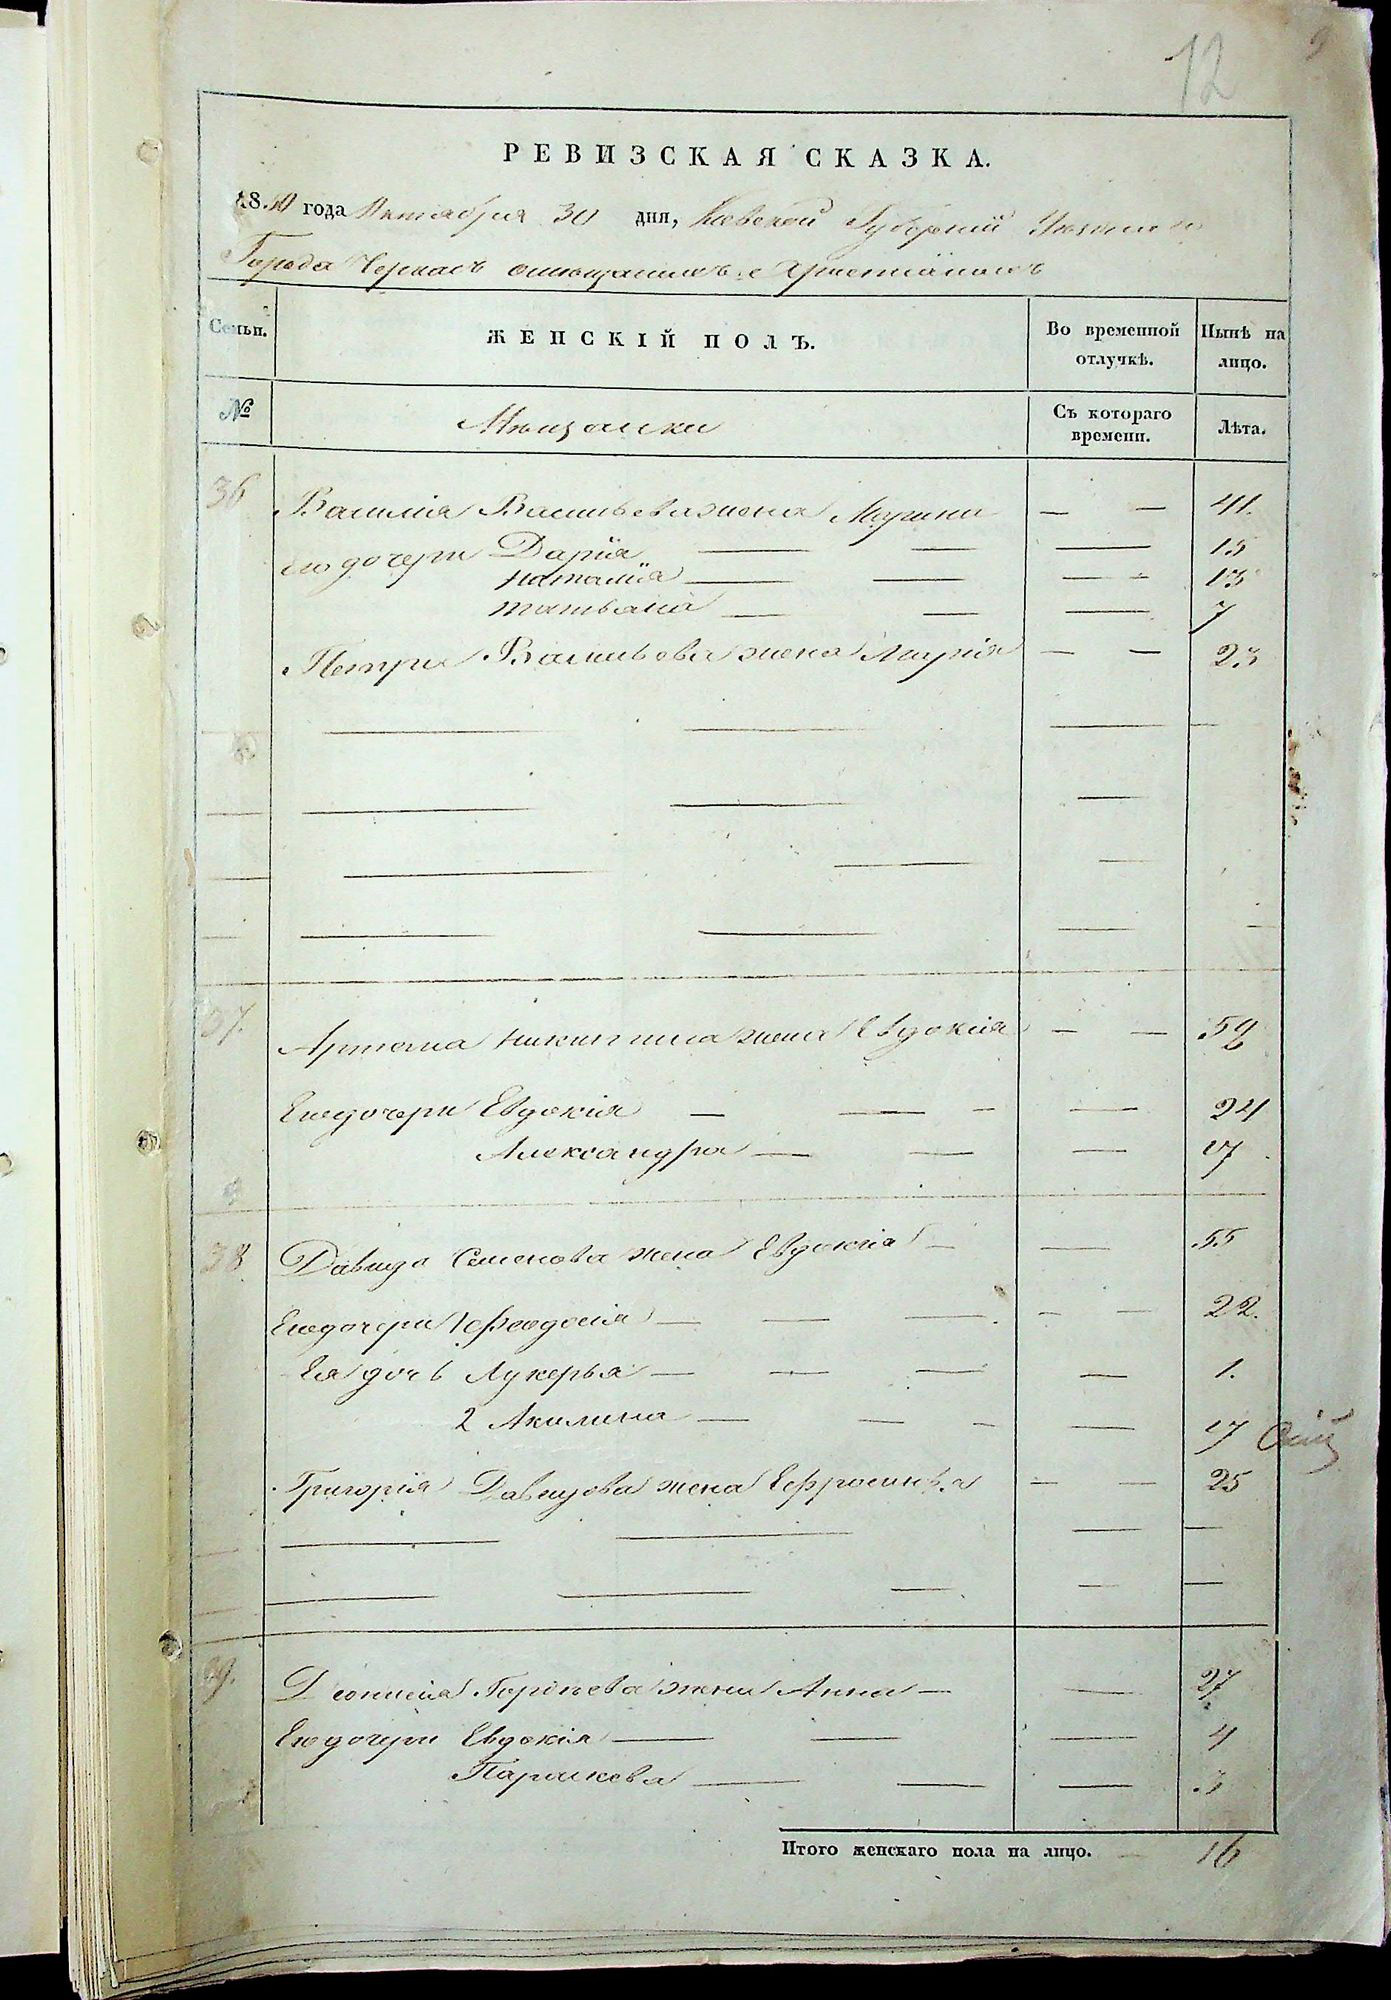 12
РЕВИЗСКАЯ СКАЗКА.
1850 года Октября 30 дня, Киевской Губерніи Уезднаго
Города Черкасъ о мещанахъ Христіянахъ
Семьи. ЖЕНСКІЙ ПОЛЪ. Во временной отлучкѣ. Нынѣ на лицо.
№ Мещанки Съ котораго времени. Лѣта.
36 Василія Васильева жена — — 41.
его дочери Дарія — — — 15
Наталія — — — — 13
татьяна — — — 7
Петра Васильева жена Марія — — 23
37. Артема Никитина жена Евдокія — — 52
Его дочери Евдокія — — — — 24
Александра — — — 17
38 Давида Семенова жена Евдокія — — 55
Его дочери 1 Феодосія — — — — — 22.
Ея дочь Лукерья — — — — 1.
2 Акилина — — — — 17
Григорія Давидова жена Ефросинья — — 25
39. Деонисія жена Анна — — 27
Его дочери Евдокія — — — 4
Параскева — — — 3
Итого женскаго пола на лицо. — 16